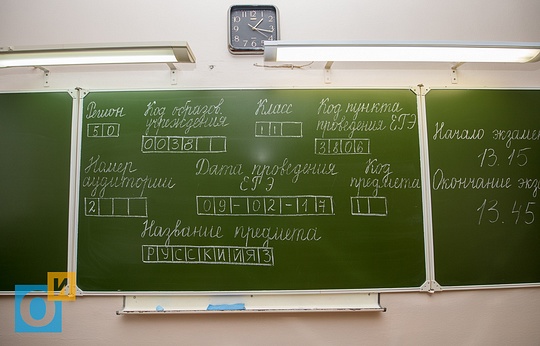 Регион
50
Код образов.
учреждения
0038
Класс
11
Код пункта
проведения ЕГЭ
3806
Номер
аудитории
2
Дата проведения
ЕГЭ
09-02-17
Код
предмета
Название предмета
РУССКИЙЯЗ
Начало экзамен
13.15
Окончание экз
13.45
ОИ